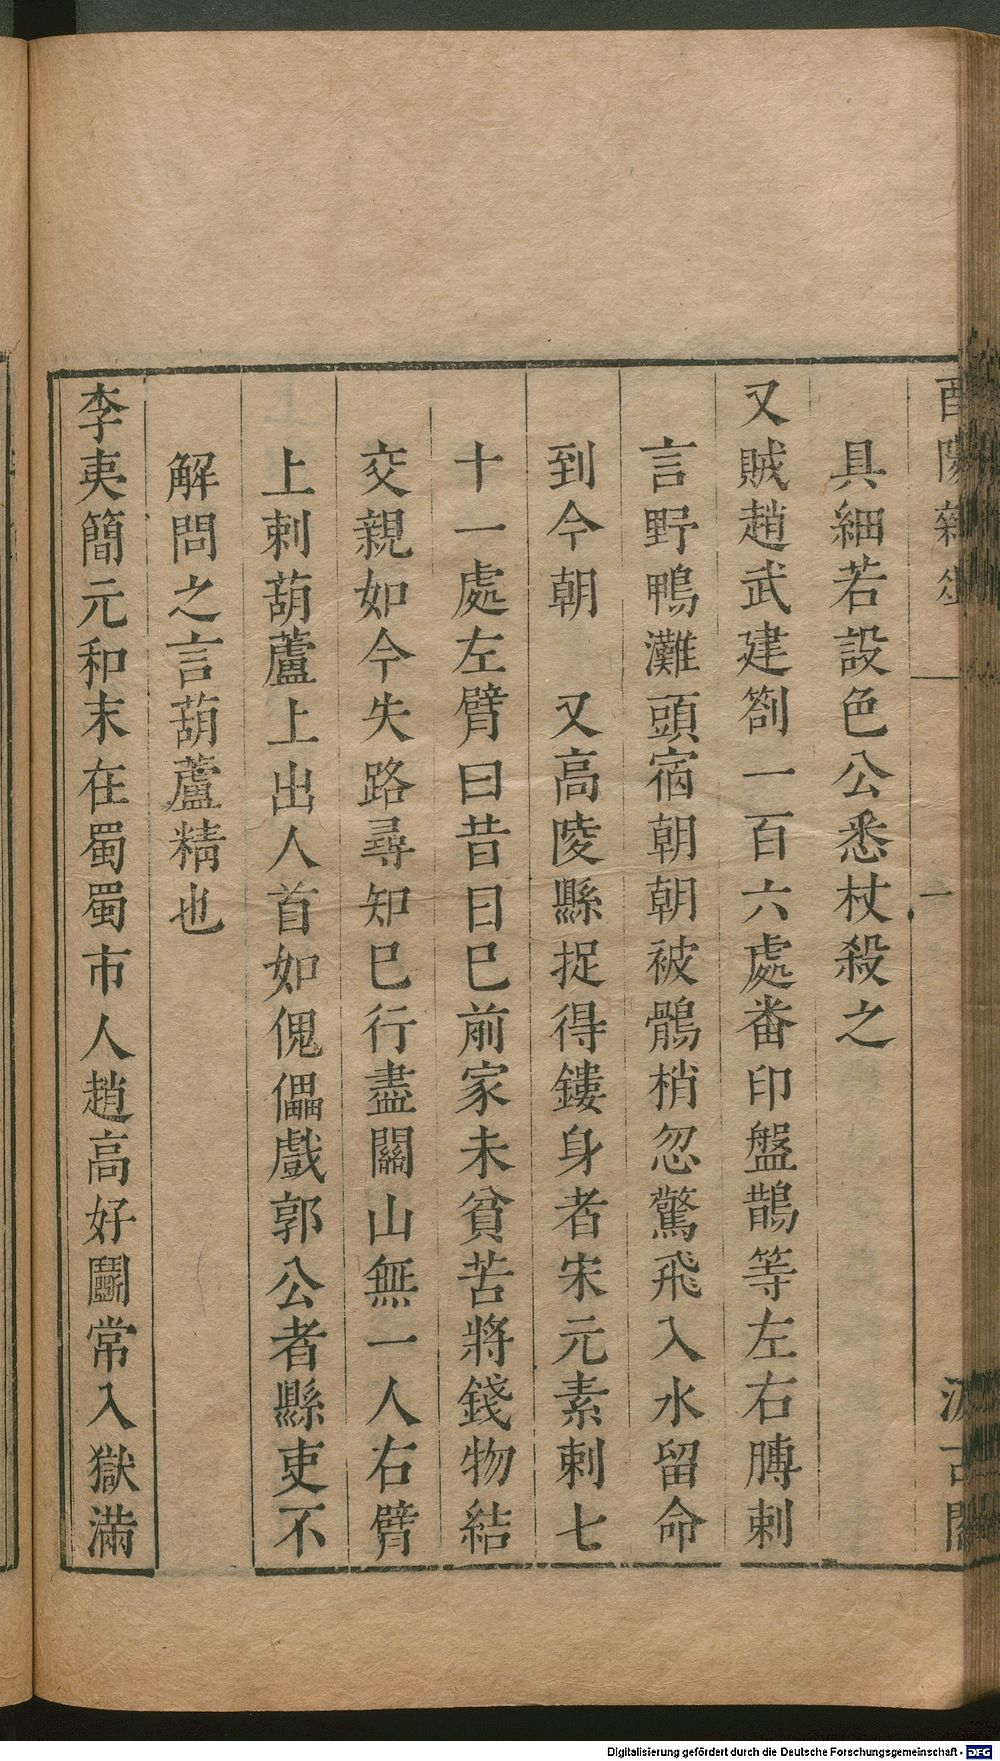 酉陽雜
一
汲古閣
具細若設色公悉杖殺之
又賊趙武建劄一百六處番印盤鵲等左右膊刺
言野鴨灘頭宿朝朝被鶻梢忽驚飛入水留命
到今朝　又高陵縣捉得鏤身者宋元素刺七
十一處左臂曰昔日已前家未貧苦將錢物結
交親如今失路尋知已行盡關山無一人右臂
上刺葫蘆上出人首如傀儡戲郭公者縣吏不
解問之言葫蘆精也
李夷簡元和末在蜀蜀市人趙高好鬭常入獄滿
Digitalisierung gefördert durch die Deutsche Forschungsgemeinschaft - DFG